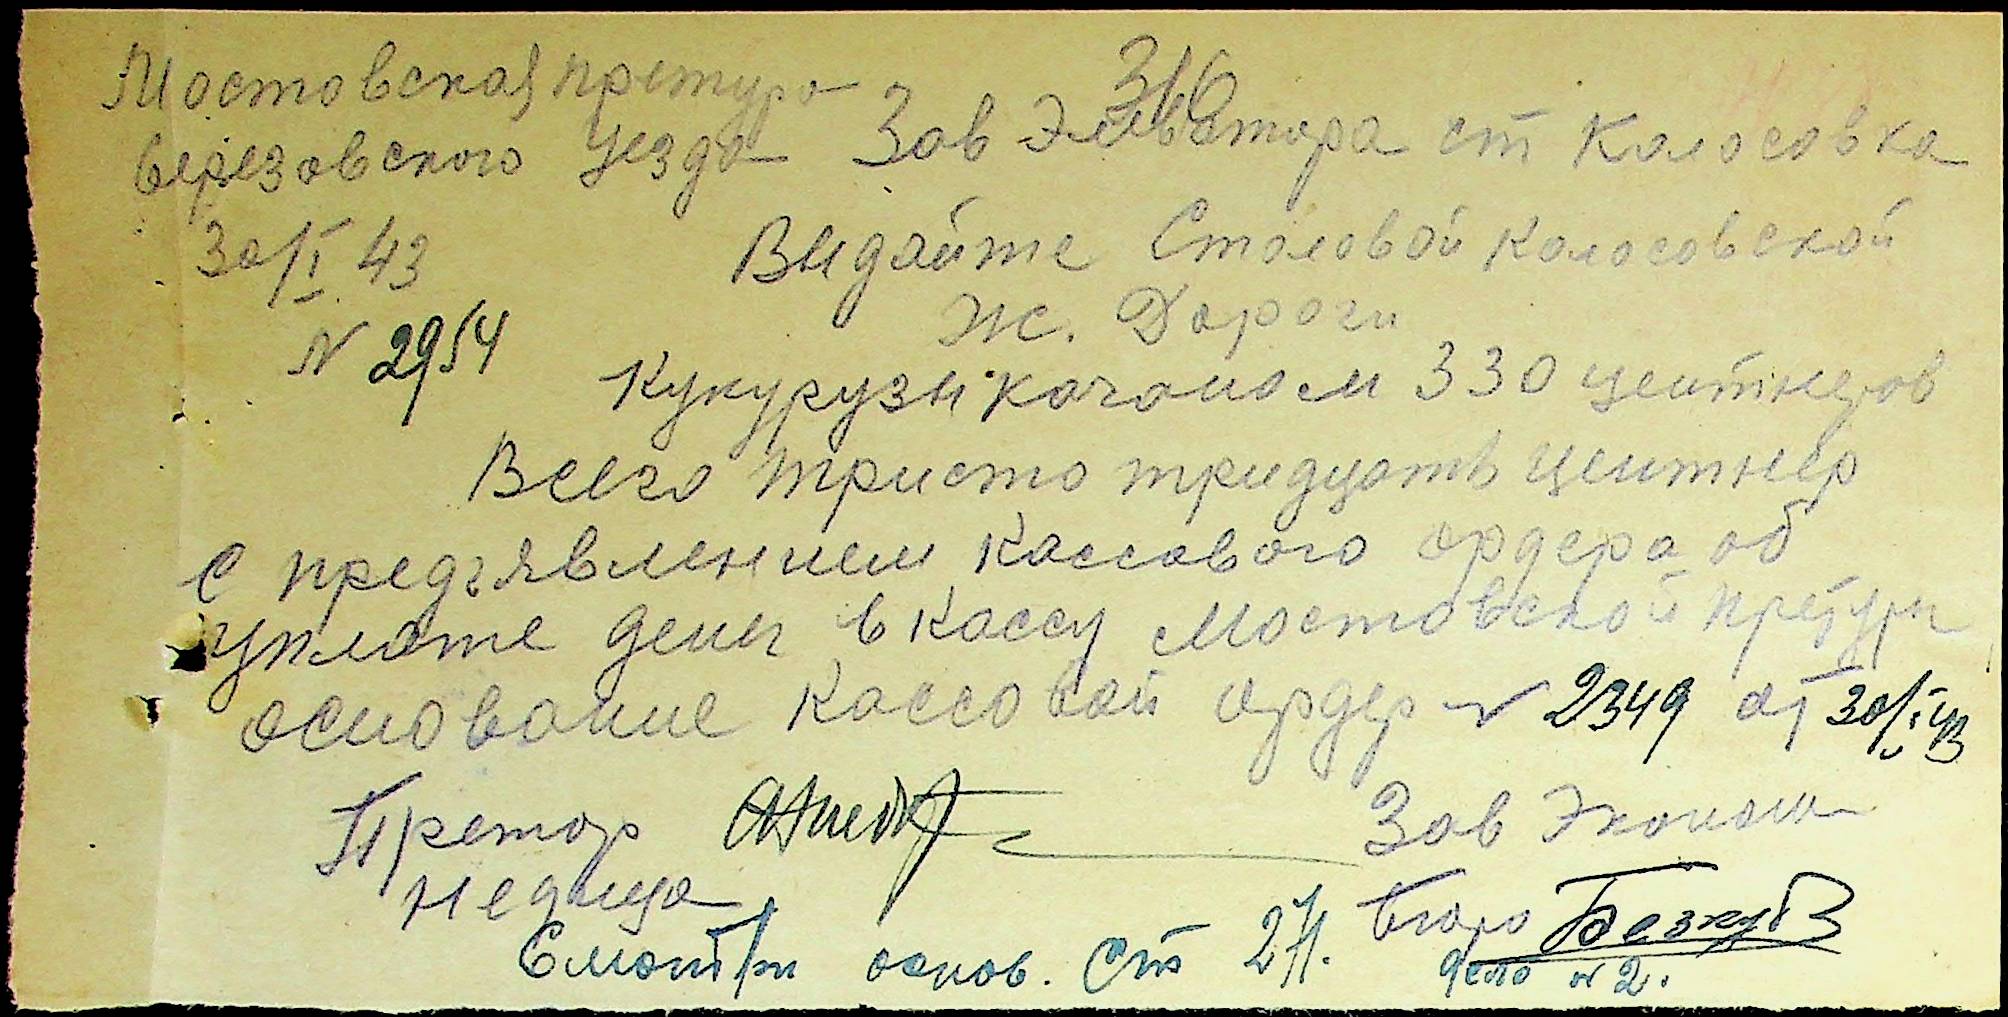 316
Мостовская претура
Березовского уезда
Зав Элеватора ст Колосовка
30/I 43
N 2954
Выдайте Столовой Колосовской
Ж. Дороги
Кукурузы качаном 330 центнеров
Всего триста тридцать центнер
с предъявлением кассового ордера об
уплате денег в кассу Мостовской претуры
основание кассовый ордер N 2349 от 30/I 43
Претор
Недица
Зав Эконом
Бюро
Смотри основ. Ст 271.
дело N 2.